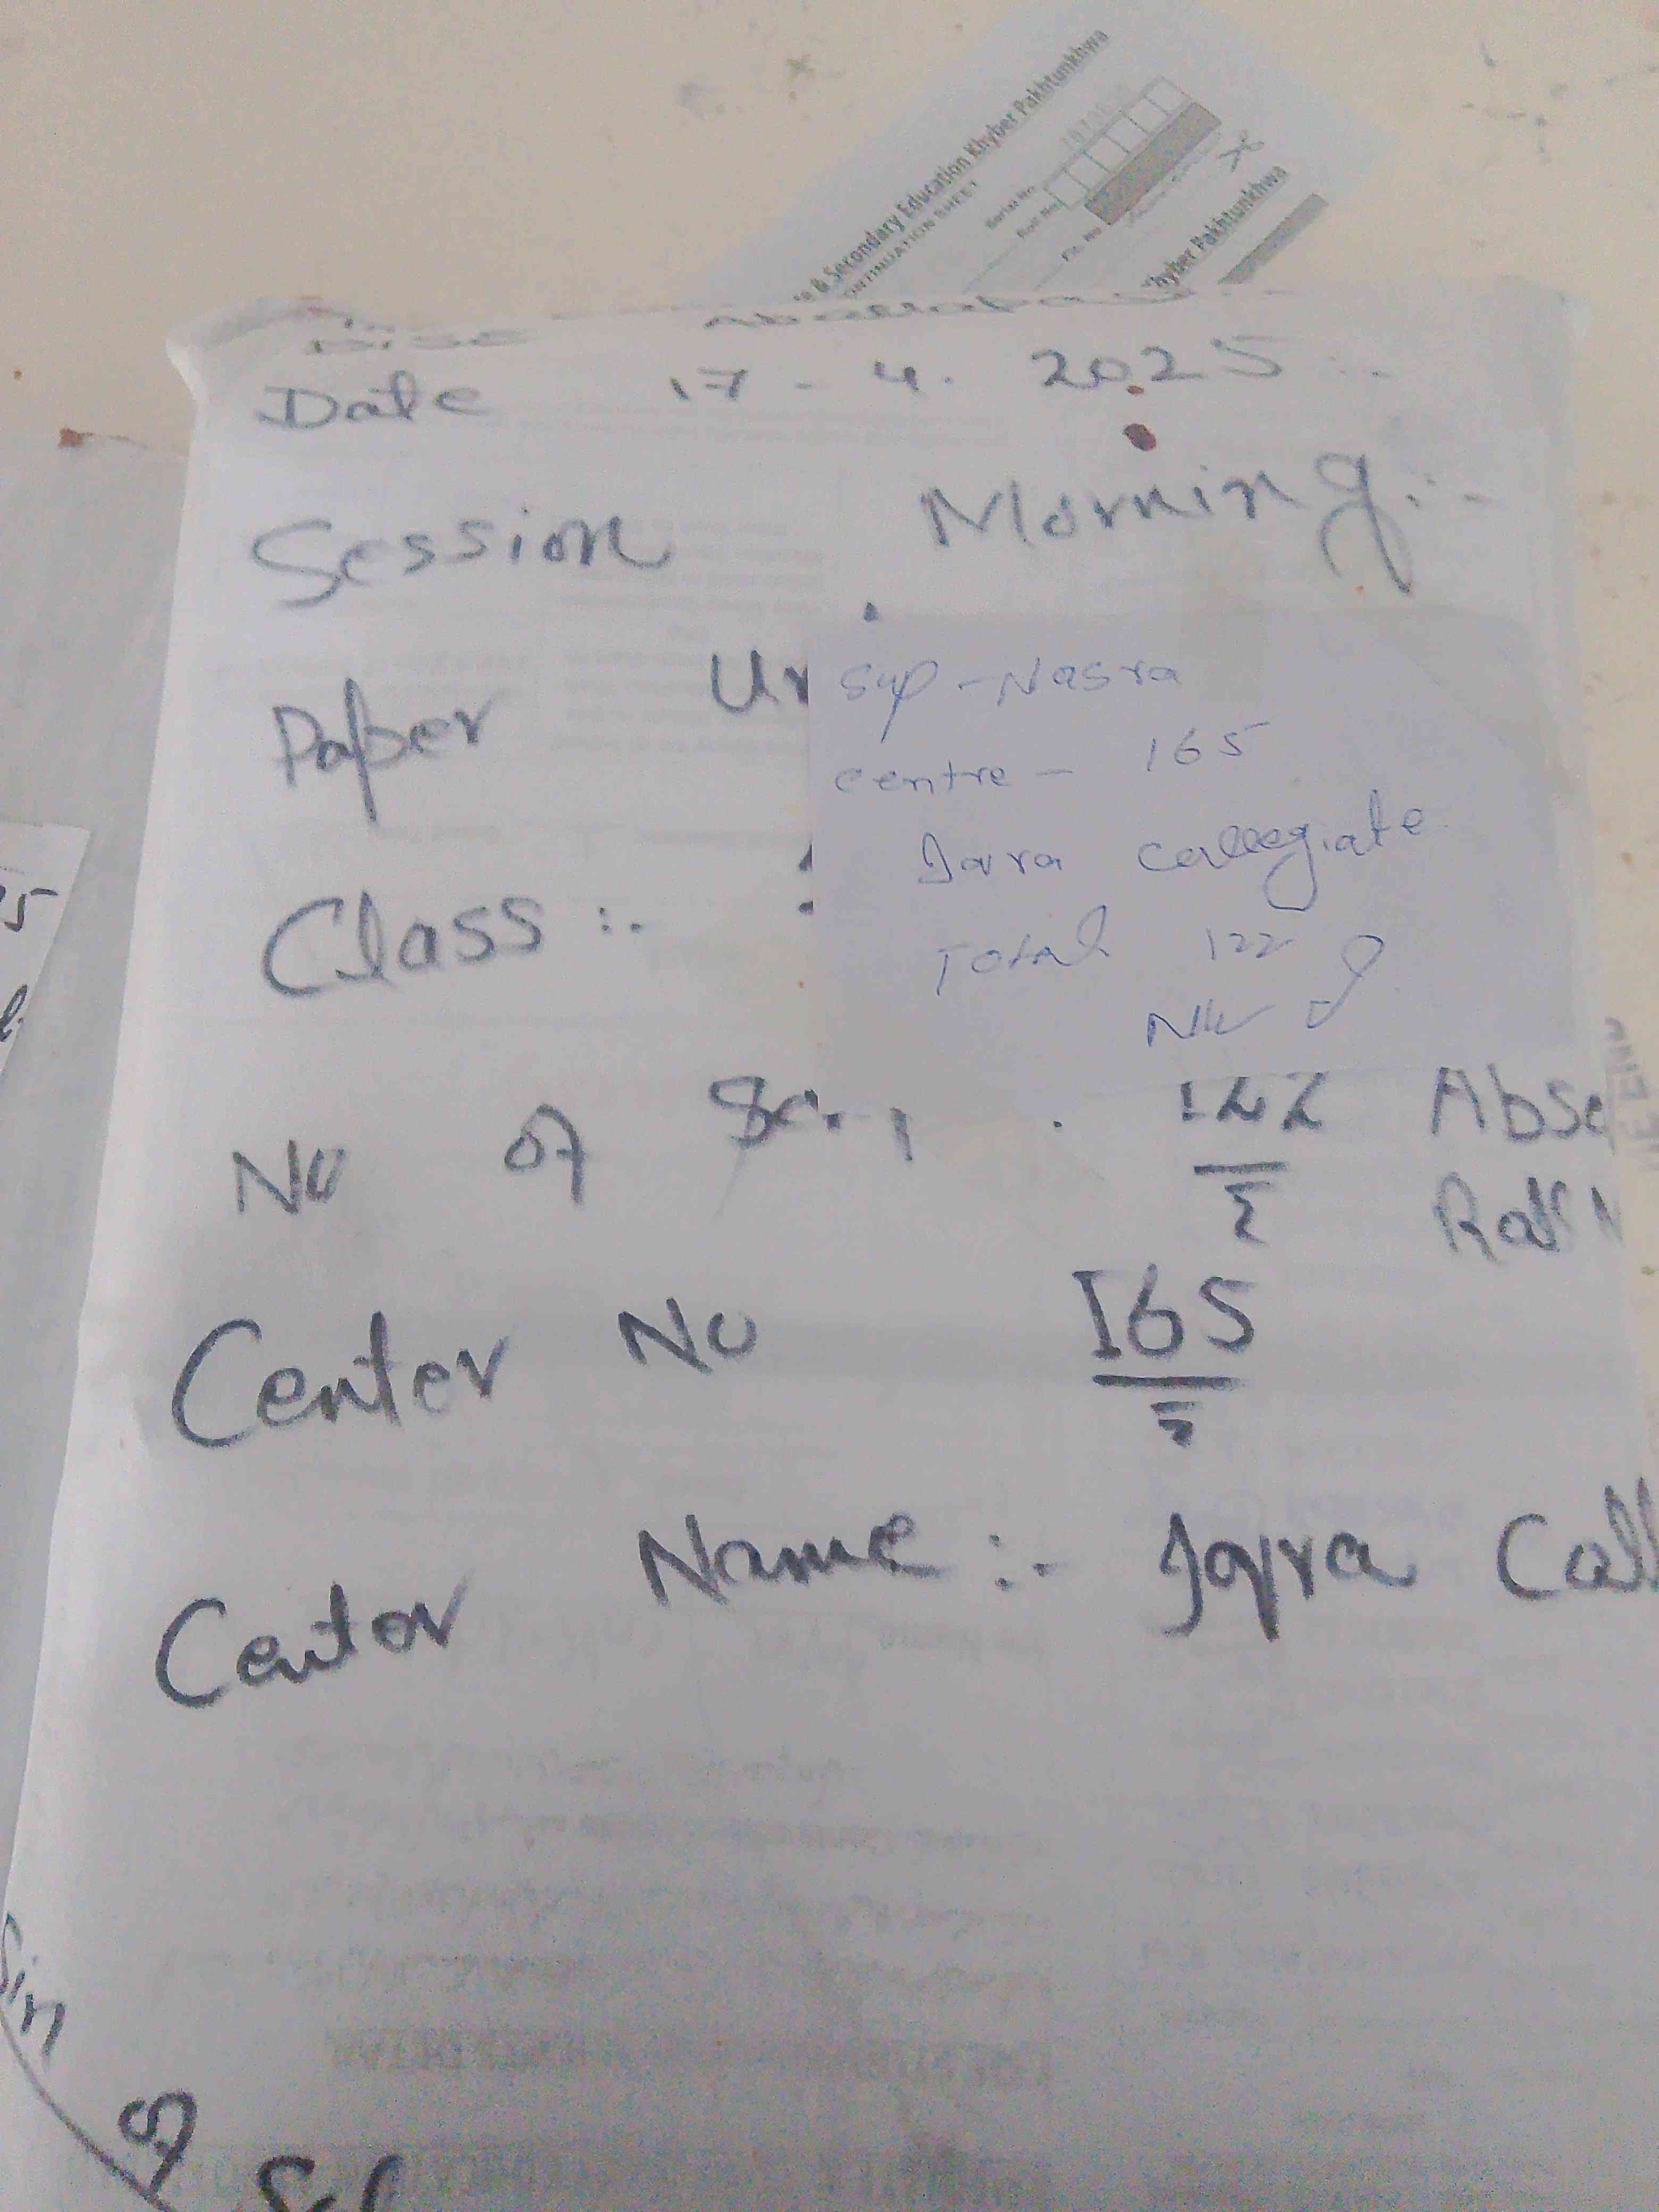 & Secondary Education Khyber Pakhtunkhwa
CONTINUATION SHEET
Serial No.
Roll No.
Khyber Pakhtunkhwa
Date 17 - 4 . 2025
Session Morning :-
Paper Ur
Class :-
Sup - Nasra
centre - 165
Iqra collegiate
Total 122
Nil
No of 122 Abse
Roll N
Center No 165
Center Name :- Iqra Coll